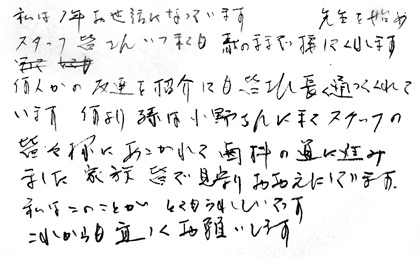 私は7年お世話になっています 先生を始め
スタッフ皆さんいつまでも のままで接してくれます
何人かの友達を紹介に日皆さん長く通ってくれて
います 何より 孫は小野さんにまでスタッフの
皆々様にあこがれて歯科の道に進み
ました 家族皆で見守りおおえています。
私はこのことがとてもうれしいです
これからも宜しくお願いします